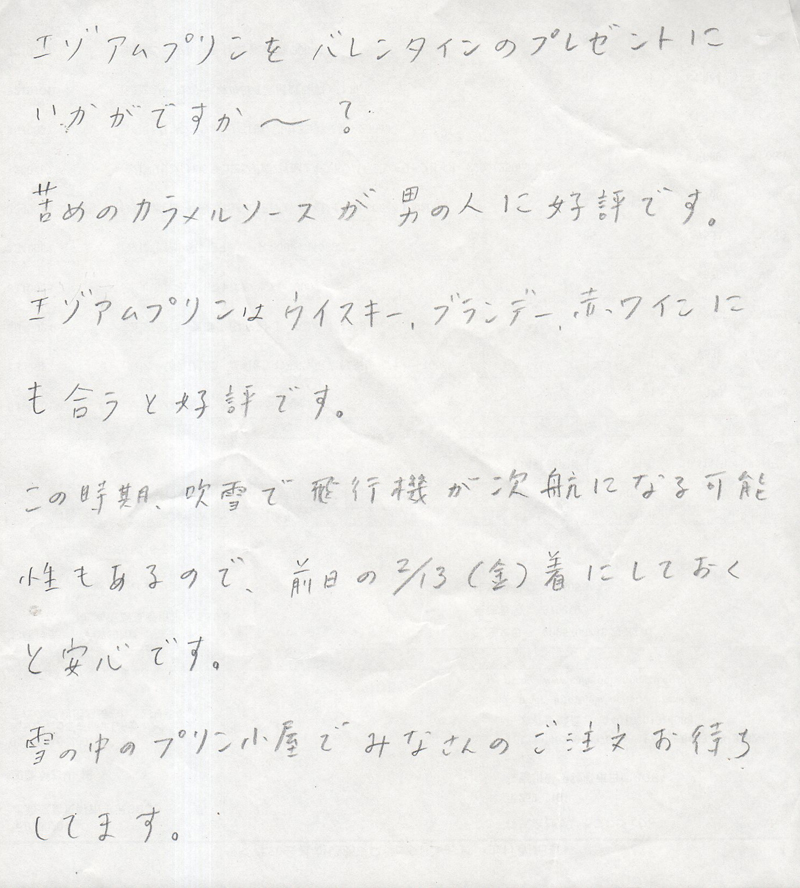 エゾアムプリンを バレンタインのプレゼントに
いかがですか〜?
苦めのカラメルソースが 男の人に好評です。
エゾアムプリンはウイスキー、ブランデー、赤ワインに
も合うと好評です。
この時期、吹雪で飛行機が次航になる可能
性もあるので、前日の2/13(金)着にしておく
と安心です。
雪の中のプリン小屋でみなさんのご注文お待ち
してます。